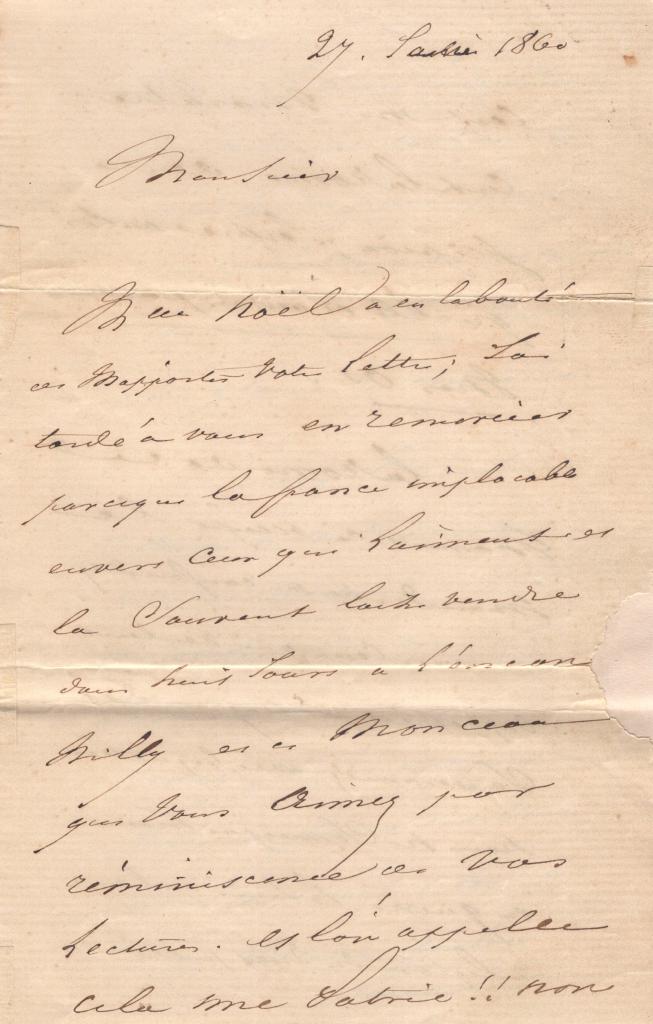 27. 1860
Monsieur
noël a eu la bonté
de m'apporter votre lettre; J'ai
tardé à vous en remercier
parceque la france implacable
envers ceux qui l'aiment et
la Sauvent laisse vendre
dans huit Jours a l'encan
Milly et Monceau
que vous aimez par
réminiscence de vos
Lectures. et l'on appelle
cela une Patrie!! non